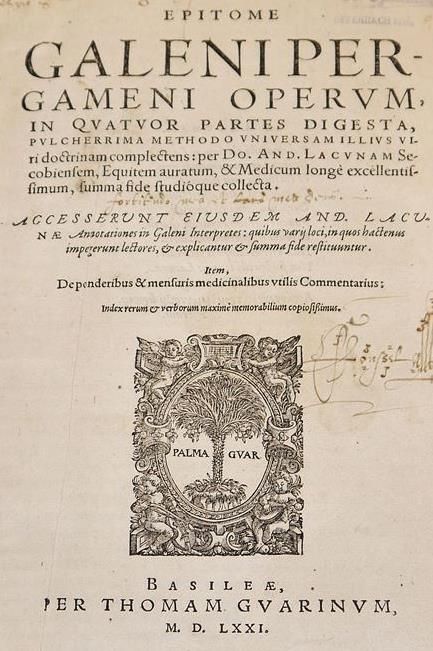 EPITOME
GALENI PER-
GAMENI OPERVM,
IN QVATVOR PARTES DIGESTA,
PVLCHERRIMA METHODO VNIVERSAM ILLIVS VI-
ri doctrinam complectens: per DO. AND. LACVNAM Se-
cobiensem, Equitem auratum, & Medicum longè excellentis-
simum, summa fide studióque collecta.
ACCESSERUNT EIUSDEM AND. LACU-
NÆ Annotationes in Galeni Interpretes: quibus varij loci, in quos hactenus
impegerunt lectores, & explicantur & summa fide restituuntur.
Item,
De ponderibus & mensuris medicinalibus vtilis Commentarius;
Index rerum & verborum maximè memorabilium copiosissimus.
PALMA GVAR
BASILEÆ,
PER THOMAM GVARINVM,
M. D. LXXI.